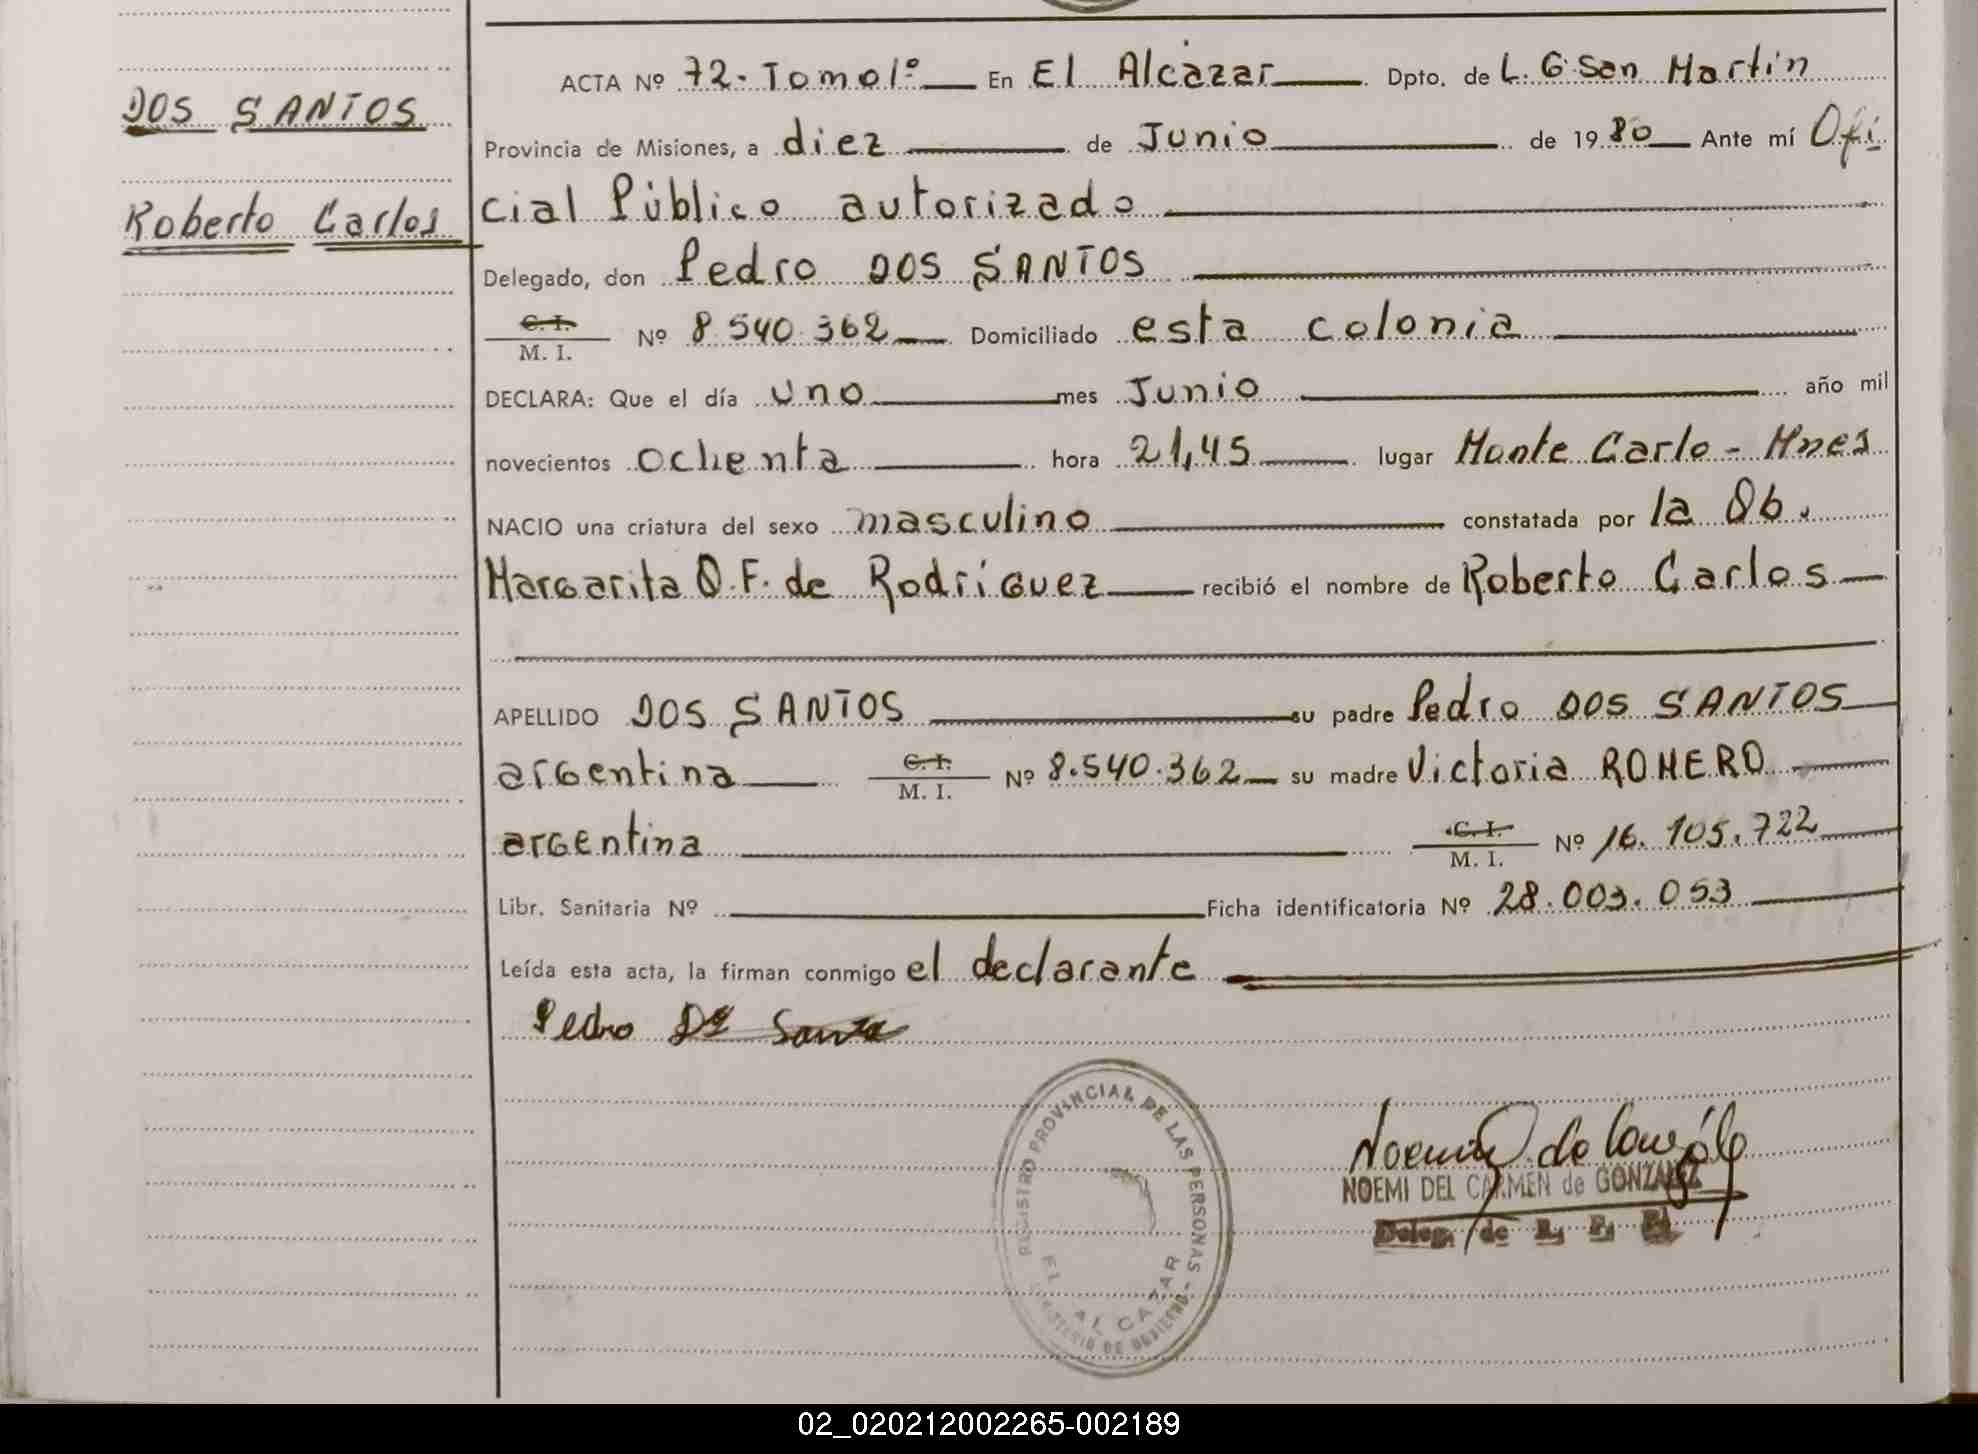 DOS SANTOS
Roberto Carlos
ACTA Nº 72- Tomo 1º En El Alcázar Dpto. de L. G San Martín
Provincia de Misiones, a diez de Junio de 1980 Ante mí Ofi
cial Público autorizado
Delegado, don Pedro DOS SANTOS
C. I.
M. I. Nº 8.540.362 Domiciliado esta colonia
DECLARA: Que el día uno mes Junio año mil
novecientos ochenta hora 21,45 lugar Monte Carlo - Mnes
NACIO una criatura del sexo masculino constatada por la Ob.
Margarita O.F. de Rodríguez recibió el nombre de Roberto Carlos
APELLIDO DOS SANTOS su padre Pedro DOS SANTOS
argentina C. I. M. I. Nº 8.540.362 su madre Victoria ROMERO
argentina C. I. M. I. Nº 16.105.722
Libr. Sanitaria Nº Ficha identificatoria Nº 28.003.053
Leída esta acta, la firman conmigo el declarante
Pedro Dos Santos
REGISTRO PROVINCIAL DE LAS PERSONAS - MINISTERIO DE GOBIERNO
EL ALCAZAR
Noemi de González
NOEMI DEL CARMEN de GONZALEZ
Deleg. de R. P. P.
02_020212002265-002189